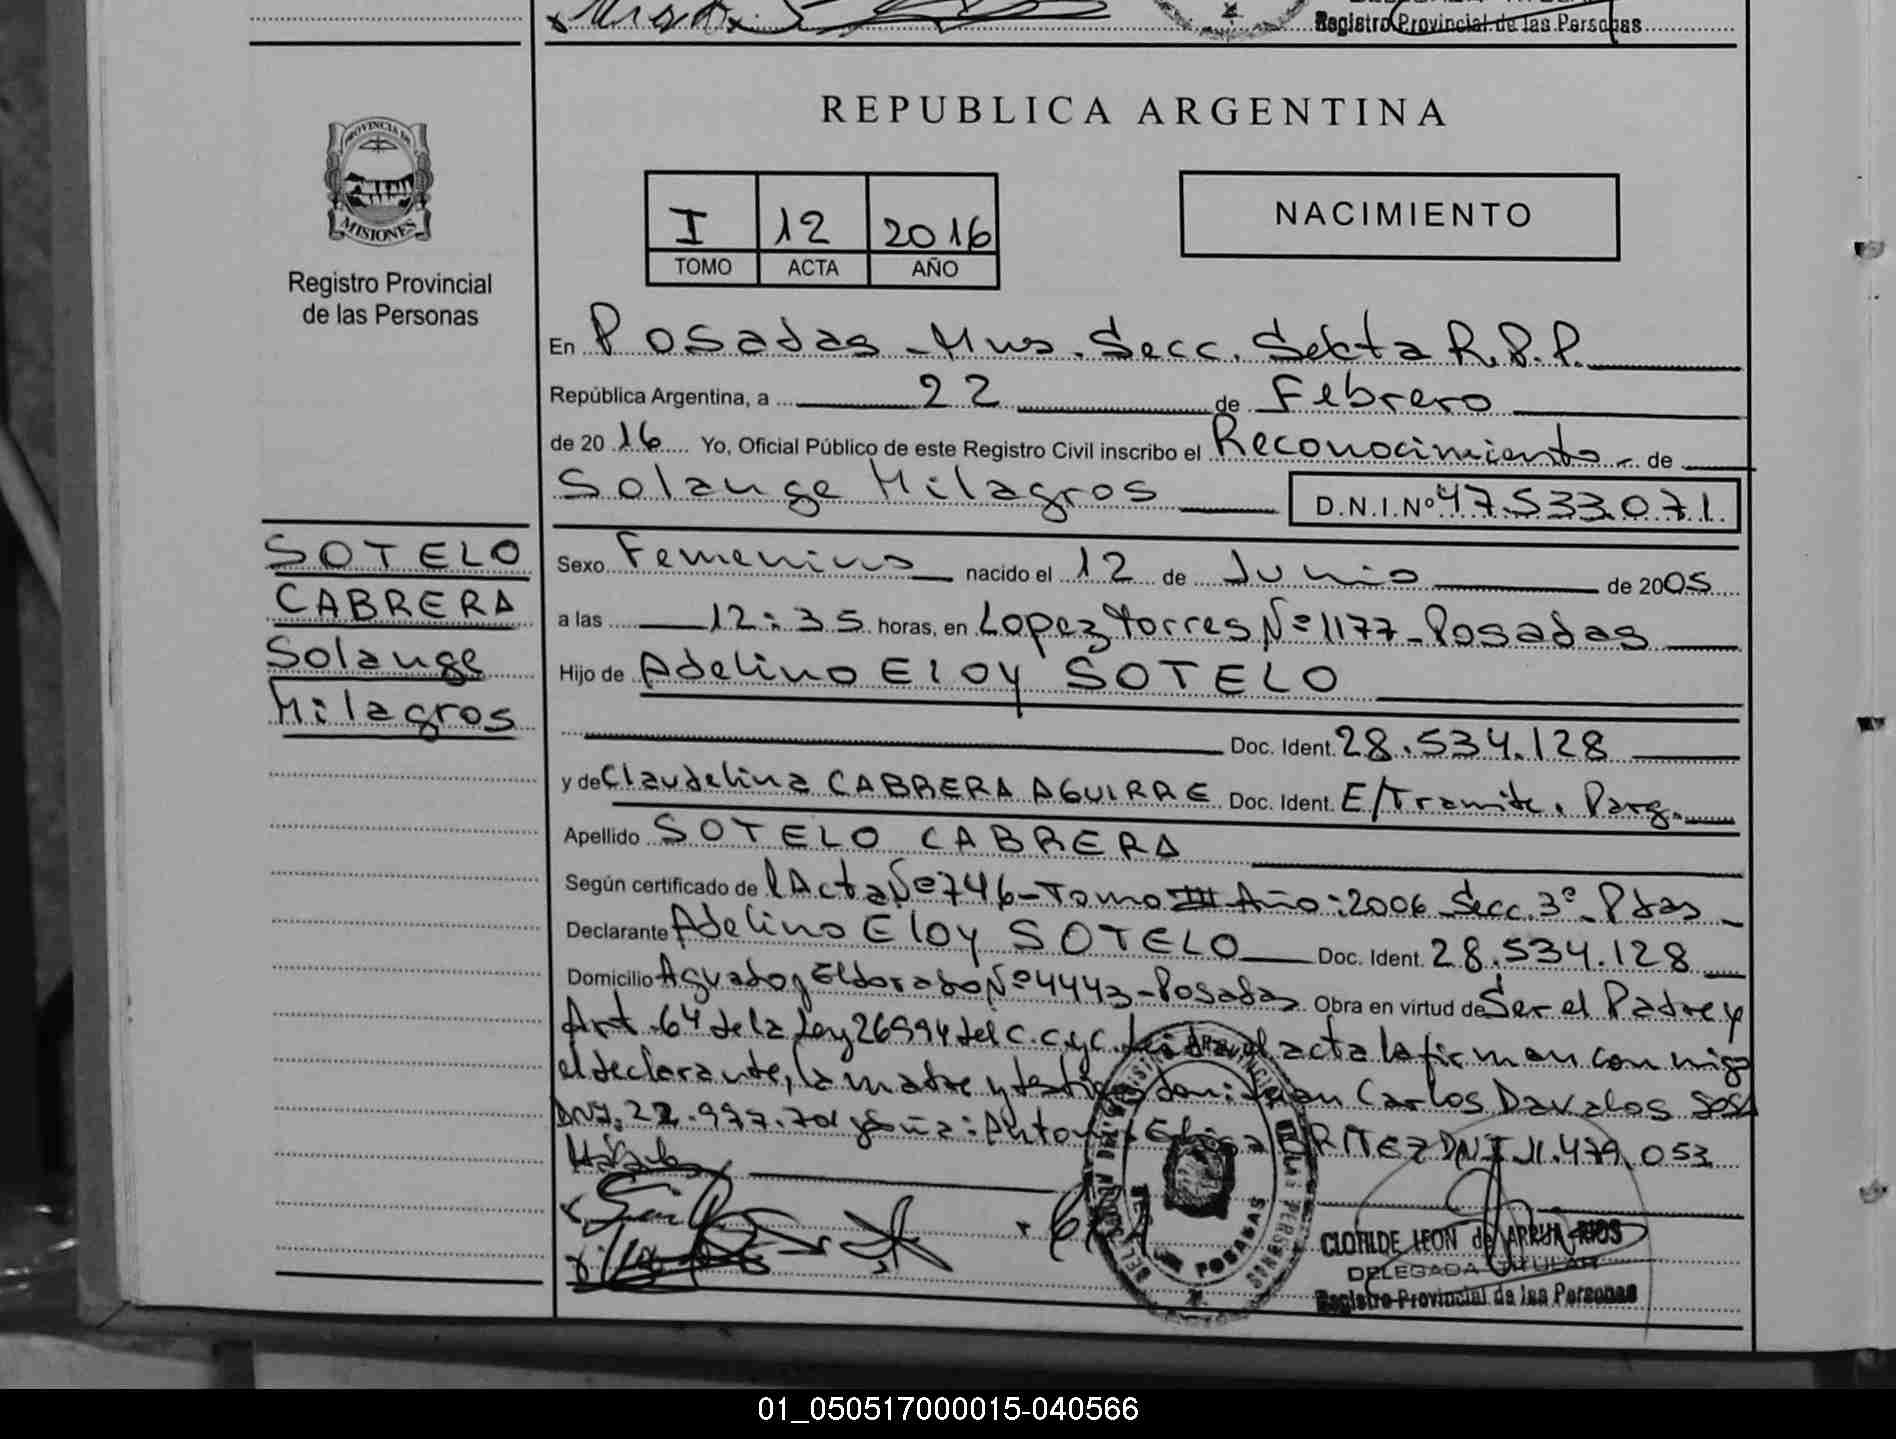 Registro Provincial de las Personas
REPUBLICA ARGENTINA
PROVINCIA DE
MISIONES
Registro Provincial
de las Personas
I 12 2016
TOMO ACTA AÑO
NACIMIENTO
En Posadas - Mns. Secc. Sexta R.P.P.
República Argentina, a 22 de Febrero
de 2016 Yo, Oficial Público de este Registro Civil inscribo el Reconocimiento de
Solange Milagros D.N.I.Nº 47.533.071.
SOTELO
CABRERA
Solange
Milagros
Sexo Femenino nacido el 12 de Junio de 2005
a las 12:35 horas, en Lopez Torres Nº 1177 - Posadas
Hijo de Adelino Eloy SOTELO
Doc. Ident. 28.534.128
y de Claudelina CABRERA AGUIRRE Doc. Ident. E/Tramite. Parg.
Apellido SOTELO CABRERA
Según certificado de l Acta Nº 746 - Tomo III Año: 2006 Secc. 3º - Pdas
Declarante Adelino Eloy SOTELO Doc. Ident. 28.534.128
Domicilio Aguado y Eldorado Nº 4443 - Posadas Obra en virtud de Ser el Padre y
Art. 64 de la Ley 26994 del C.C.y C. Leida el acta la firman conmigo
el declarante, la madre y testigos don: Juan Carlos Davalos Sosa
DNI. 22.977.701 y doña: Antonia BRITEZ DNI 11.479.053
CLOTILDE LEON de ARRUA RIOS
DELEGADA TITULAR
Registro Provincial de las Personas
POSADAS
01_050517000015-040566